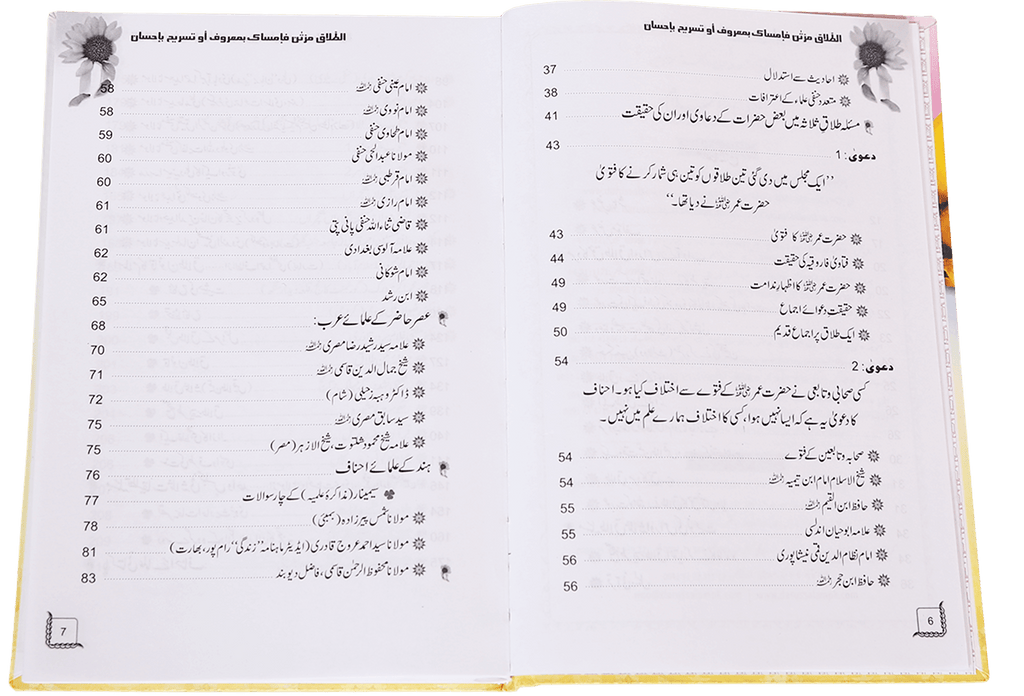 الطلاق مرتٰن فإمساک بمعروف أو تسریح بإحسان
احادیث سے استدلال 37
متعدد حنفی علماء کے اعترافات 38
مسئلہ طلاقِ ثلاثہ میں بعض حضرات کے دعاوی اور ان کی حقیقت 41
دعویٰ : 1 43
’’ایک مجلس میں دی گئی تین طلاقوں کو تین ہی شمار کرنے کا فتویٰ
حضرت عمر رضی اللہ عنہ نے دیا تھا۔‘‘
حضرت عمر رضی اللہ عنہ کا فتویٰ 43
فتاویٰ فاروقیہ کی حقیقت 44
حضرت عمر رضی اللہ عنہ کا اظہارِ ندامت 49
حقیقت دعوائے اجماع 49
ایک طلاق پر اجماع قدیم 50
دعویٰ : 2 54
کسی صحابی و تابعی نے حضرت عمر رضی اللہ عنہ کے فتوے سے اختلاف کیا ہو۔ احناف
کا دعویٰ یہ ہے کہ ایسا نہیں ہوا، کسی کا اختلاف ہمارے علم میں نہیں۔
صحابہ و تابعین کے فتوے 54
شیخ الاسلام امام ابن تیمیہ رحمہ اللہ 54
حافظ ابن القیم رحمہ اللہ 55
علامہ ابوحیان اندلسی 55
امام نظام الدین قمی نیشاپوری 56
حافظ ابن حجر رحمہ اللہ 56
6
الطلاق مرتٰن فإمساک بمعروف أو تسریح بإحسان
امام عینی حنفی رحمہ اللہ 58
امام نووی رحمہ اللہ 58
امام طحاوی حنفی 59
مولانا عبدالحی حنفی 60
امام قرطبی رحمہ اللہ 60
امام رازی رحمہ اللہ 61
قاضی ثناء اللہ حنفی پانی پتی 61
علامہ آلوسی بغدادی 62
امام شوکانی 62
ابن رشد 65
عصرِ حاضر کے علمائے عرب: 68
علامہ سید رشید رضا مصری رحمہ اللہ 70
شیخ جمال الدین قاسمی رحمہ اللہ 71
ڈاکٹر وہبہ زحیلی (شام) 72
سید سابق مصری رحمہ اللہ 75
علامہ شیخ محمود شلتوت، شیخ الازہر (مصر) 75
ہند کے علمائے احناف 76
سیمینار (مذاکرۂ علمیہ) کے چار سوالات 77
مولانا شمس پیرزادہ (بمبئی) 78
مولانا سید احمد عروج قادری (ایڈیٹر ماہنامہ ’’زندگی‘‘ رام پور، بھارت) 81
مولانا محفوظ الرحمٰن قاسمی، فاضل دیوبند 83
7